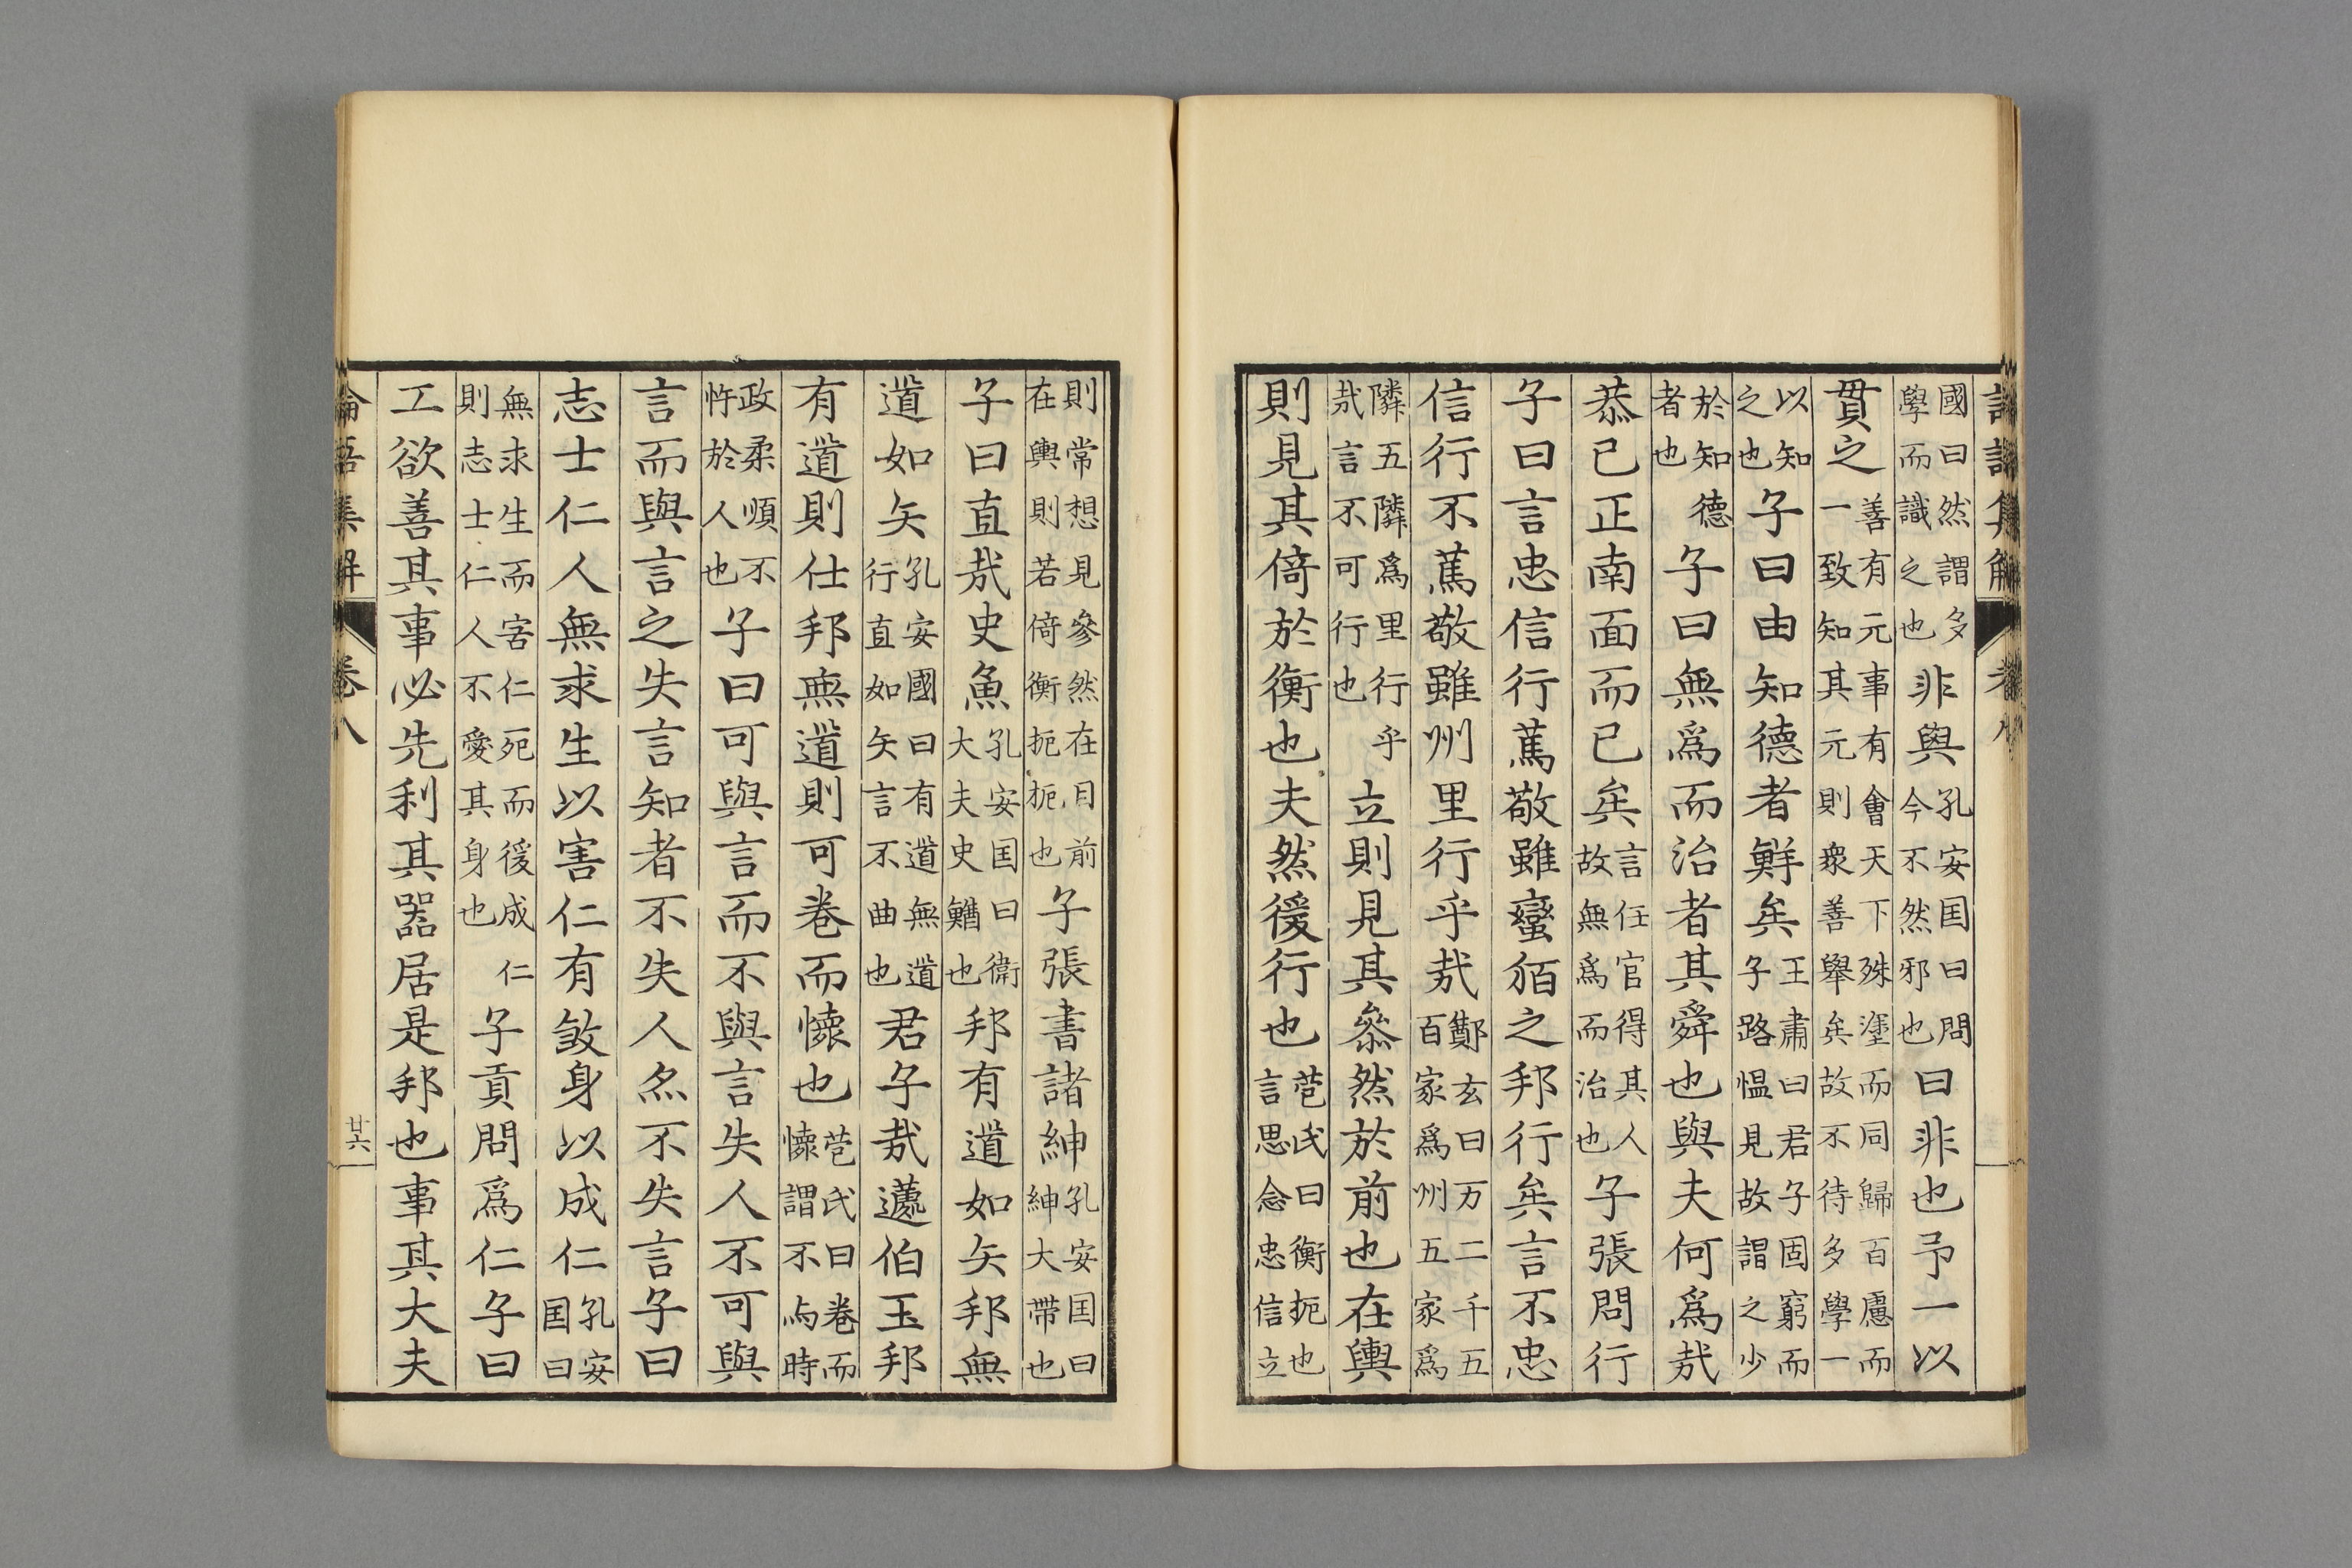 國曰然謂多學而識之也非與孔安囯曰問今不然邪也曰非也予一以
貫之善有元事有會天下殊塗而同歸百慮而一致知其元則衆善舉矣故不待多學一
以知之也子曰由知德者鮮矣王肅曰君子固窮而子路愠見故謂之少
於知德者也子曰無爲而治者其舜也與夫何爲哉
恭己正南面而已矣言任官得其人故無爲而治也子張問行
子曰言忠信行篤敬雖蠻貊之邦行矣言不忠
信行不篤敬雖州里行乎哉鄭玄曰万二千五百家爲州五家爲
隣五隣爲里行乎哉言不可行也立則見其叅然於前也在輿
則見其倚於衡也夫然後行也苞氏曰衡扼也言思念忠信立
則常想見參然在目前在輿則若倚衡扼扼也子張書諸紳孔安囯曰紳大帶也
子曰直哉史魚孔安囯曰衛大夫史鰌也邦有道如矢邦無
道如矢孔安國曰有道無道行直如矢言不曲也君子哉蘧伯玉邦
有道則仕邦無道則可卷而懷也苞氏曰卷而懷謂不与時
政柔順不忤於人也子曰可與言而不與言失人不可與
言而與言之失言知者不失人亦不失言子曰
志士仁人無求生以害仁有煞身以成仁孔安囯曰
無求生而害仁死而後成仁則志士仁人不愛其身也子貢問爲仁子曰
工欲善其事必先利其器居是邦也事其大夫
論語集解 卷八 廿六